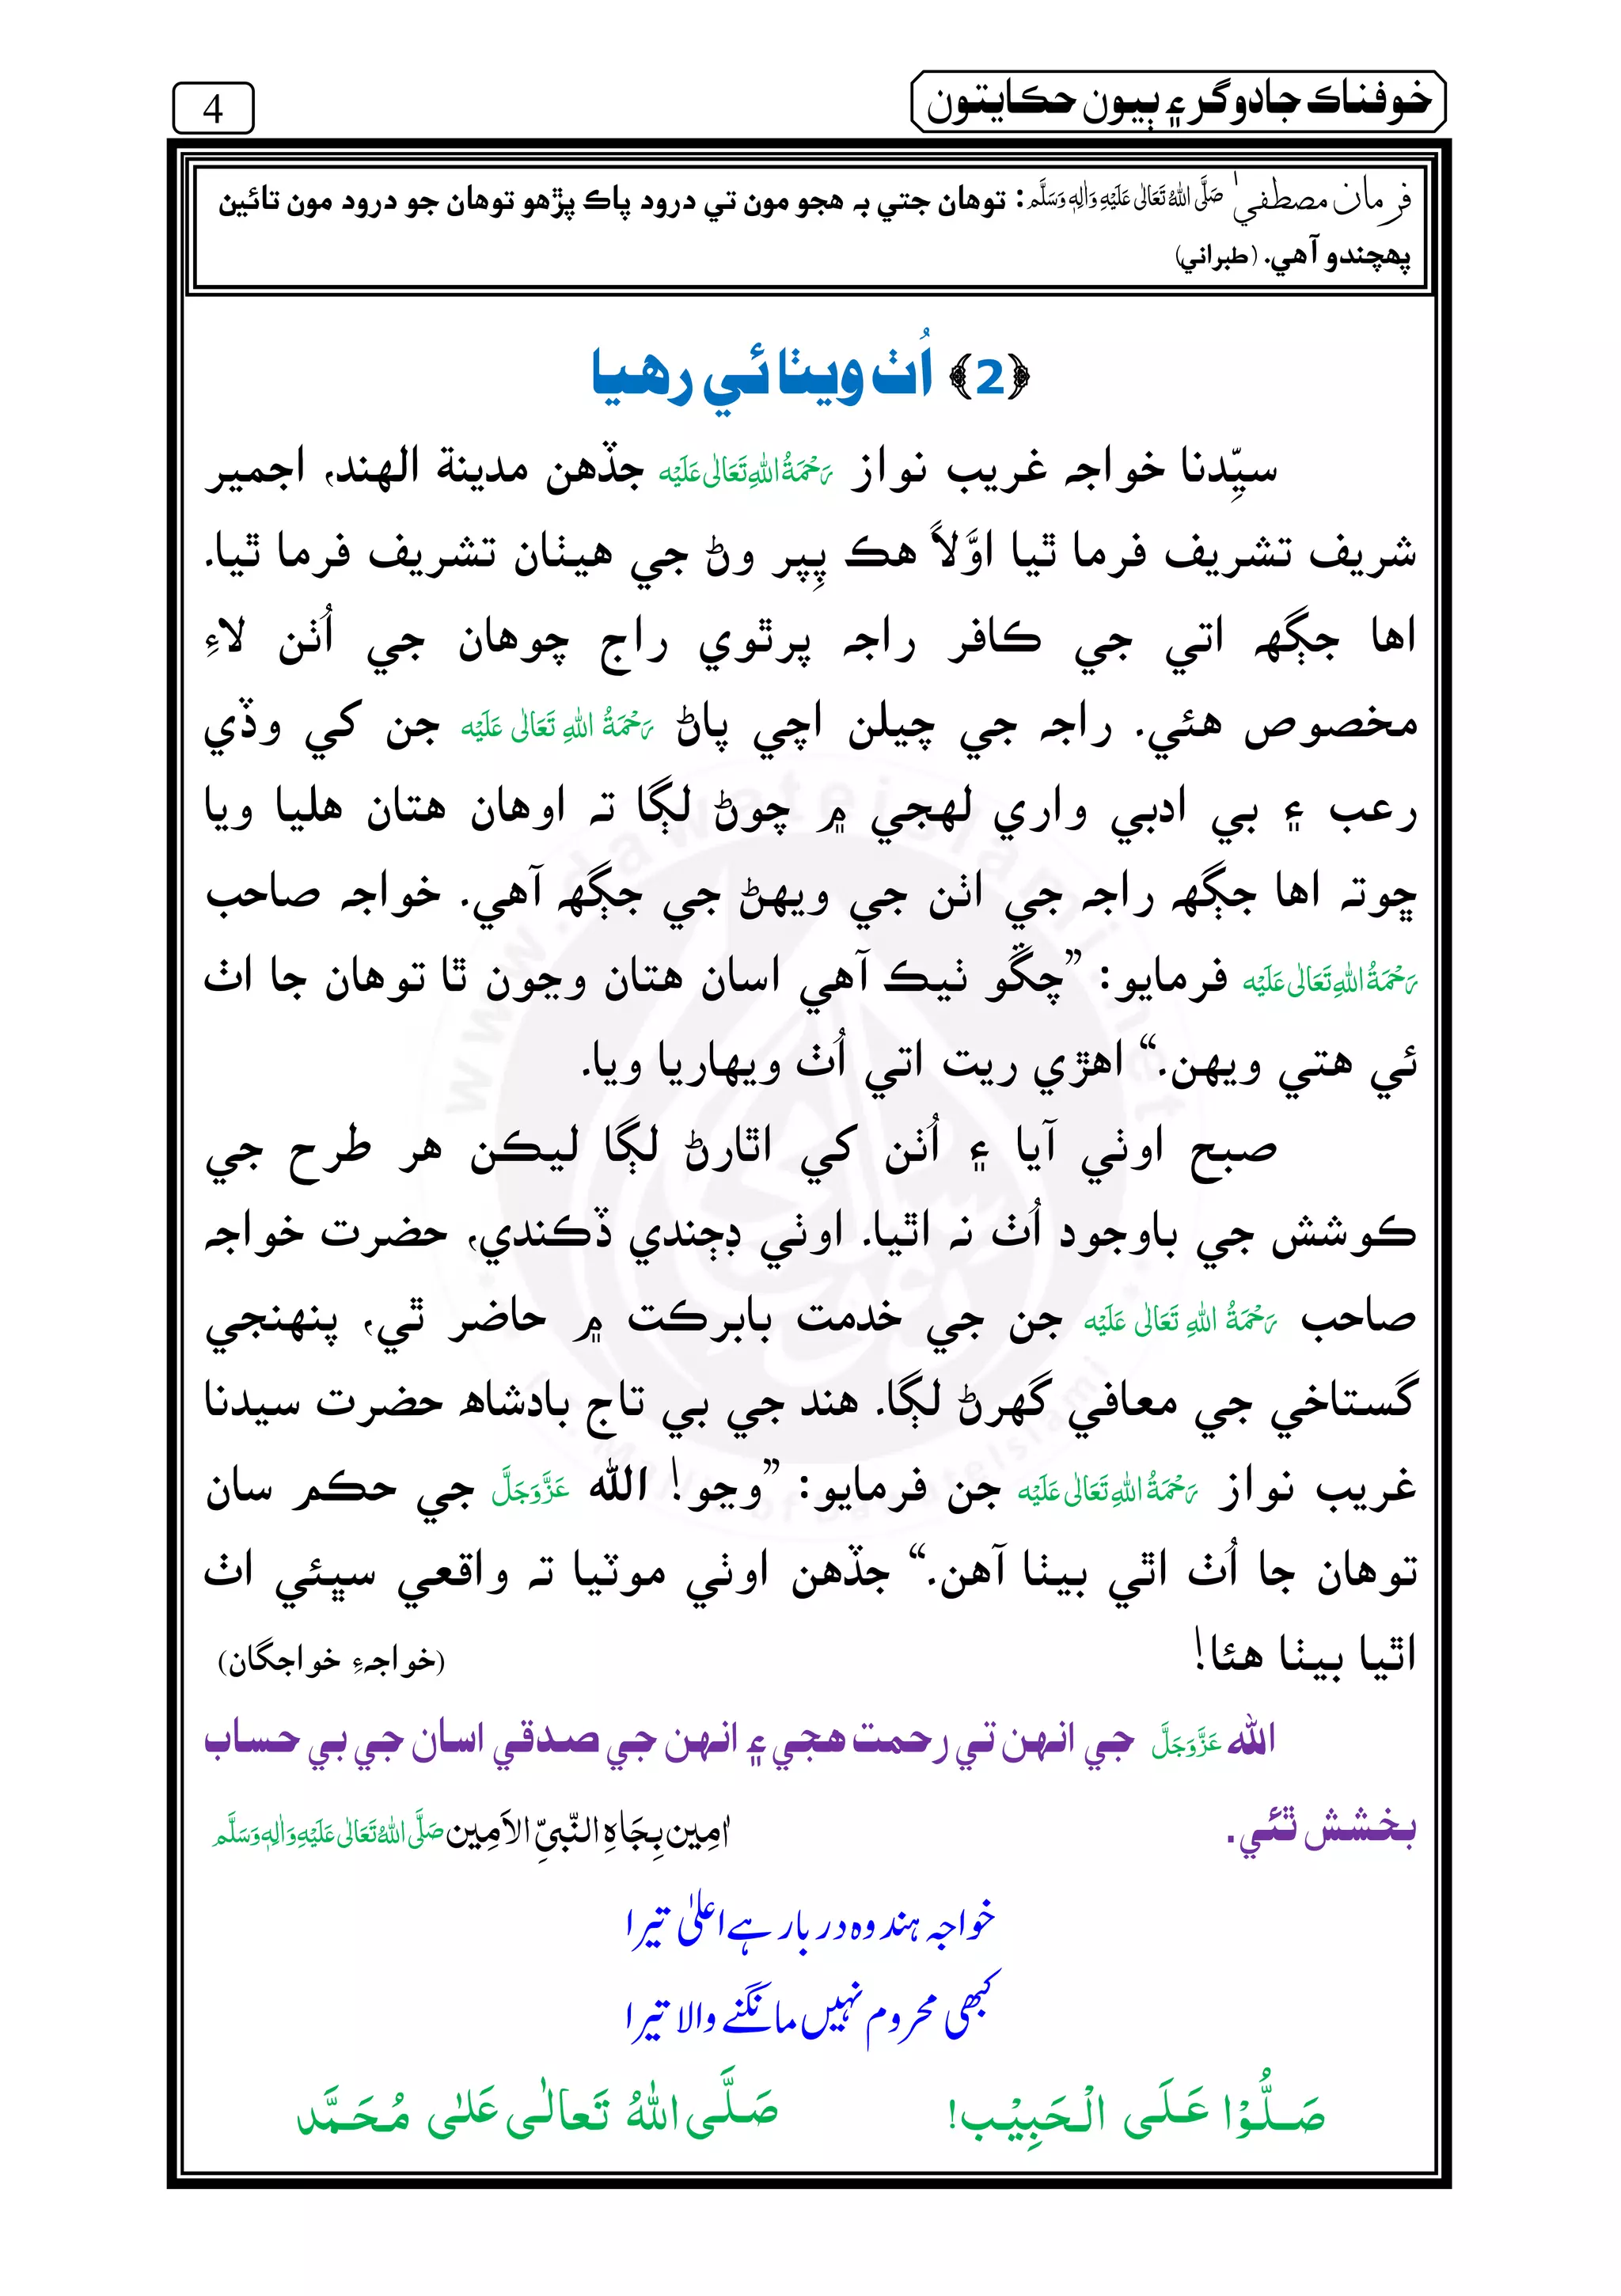 خوفناڪ جادوگر ۽ ٻيون حڪايتون
4
فرمانِ مصطفيٰ صَلَّى اللهُ تَعَالٰى عَلَيْهِ وَاٰلِهٖ وَسَلَّم: توهان جتي بہ هجو مون تي درود پاڪ پڙهو توهان جو درود مون تائين
پهچندو آهي. (طبراني)
﴿2﴾ اُٺ ويٺائي رهيا
سيِّدنا خواجہ غريب نواز رَحْمَةُ اللهِ تَعَالٰى عَلَيْه جڏهن مدينة الهند، اجمير
شريف تشريف فرما ٿيا اوّلاً هڪ پِپر وڻ جي هيٺان تشريف فرما ٿيا.
اها جڳهہ اتي جي ڪافر راجہ پرٿوي راج چوهان جي اُٺن لاءِ
مخصوص هئي. راجہ جي چيلن اچي پاڻ رَحْمَةُ اللهِ تَعَالٰى عَلَيْه جن کي وڏي
رعب ۽ بي ادبي واري لهجي ۾ چوڻ لڳا تہ اوهان هتان هليا ويا
ڇوتہ اها جڳهہ راجہ جي اٺن جي ويهڻ جي جڳهہ آهي. خواجہ صاحب
رَحْمَةُ اللهِ تَعَالٰى عَلَيْه فرمايو: ”چڱو ٺيڪ آهي اسان هتان وڃون ٿا توهان جا اٺ
ئي هتي ويهن.“ اهڙي ريت اتي اُٺ ويهاريا ويا.
صبح اوٺي آيا ۽ اُٺن کي اٿارڻ لڳا ليڪن هر طرح جي
ڪوشش جي باوجود اُٺ نہ اٿيا. اوٺي ڊڄندي ڏڪندي، حضرت خواجہ
صاحب رَحْمَةُ اللهِ تَعَالٰى عَلَيْه جن جي خدمت بابرڪت ۾ حاضر ٿي، پنهنجي
گستاخي جي معافي گهرڻ لڳا. هند جي بي تاج بادشاه حضرت سيدنا
غريب نواز رَحْمَةُ اللهِ تَعَالٰى عَلَيْه جن فرمايو: ”وڃو! الله عَزَّوَجَلَّ جي حڪم سان
توهان جا اُٺ اٿي بيٺا آهن.“ جڏهن اوٺي موٽيا تہ واقعي سڀئي اٺ
اٿيا بيٺا هئا! (خواجہءِ خواجگان)
الله عَزَّوَجَلَّ جي انهن تي رحمت هجي ۽ انهن جي صدقي اسان جي بي حساب
بخشش ٿئي. اٰمِين بِجَاهِ النَّبِيِّ الاَمِين صَلَّى اللهُ تَعَالٰى عَلَيْهِ وَاٰلِهٖ وَسَلَّم
خواجہ ہند وہ دربار ہے اعلیٰ تیرا
کبھی محروم نہیں مانگنے والا تیرا
صَلُّوْا عَلَى الْحَبِيْب! صَلَّى اللهُ تَعَالٰى عَلٰى مُحَمَّد